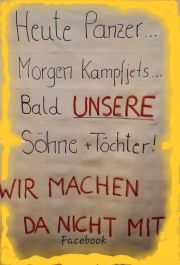 Heute Panzer...
Morgen Kampfjets...
Bald UNSERE
Söhne + Töchter!
WIR MACHEN
DA NICHT MIT
Facebook